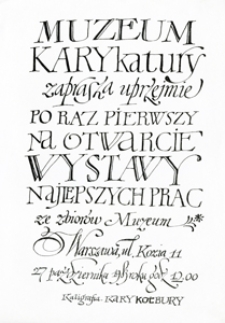 MUZEUM
KARYkatury
zaprasza uprzejmie
PO RAZ PIERWSZY
NA OTWARCIE
WYSTAWY
NAJLEPSZYCH PRAC
ze zbiorów Muzeum
Warszawa, ul. Kozia 11
27 października roku godz. 12.00
Kaligrafia KARY KOCBURY